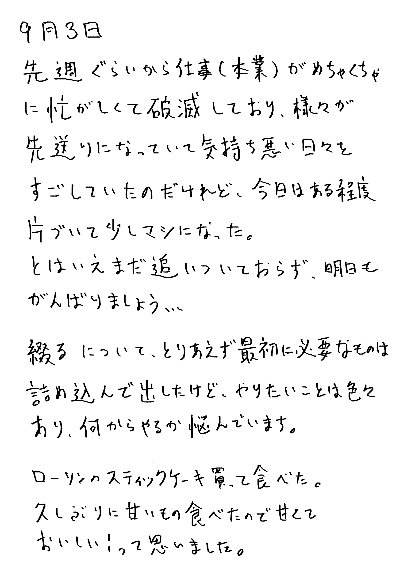 9月3日
先週ぐらいから仕事(本業)がめちゃくちゃ
に忙がしくて破滅しており、様々が
先送りになっていて気持ち悪い日々を
すごしていたのだけれど、今日はある程度
片づいて少しマシになった。
とはいえまだ追いついておらず、明日も
がんばりましょう、、、
綴るについて、とりあえず最初に必要なものは
詰め込んで出したけど、やりたいことは色々
あり、何からやるか悩んでいます。
ローソンのスティックケーキ買って食べた。
久しぶりに甘いもの食べたので甘くて
おいしい!って思いました。